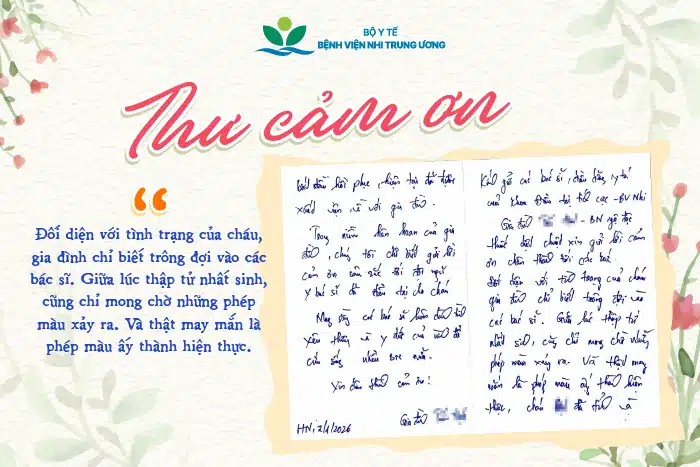 BỘ Y TẾ
BỆNH VIỆN NHI TRUNG ƯƠNG
Thư cảm ơn
“
Đối diện với tình trạng của cháu,
gia đình chỉ biết trông đợi vào các
bác sĩ. Giữa lúc thập tử nhất sinh,
cũng chỉ mong chờ những phép
màu xảy ra. Và thật may mắn là
phép màu ấy thành hiện thực.
Kính gửi các bác sĩ, điều dưỡng, y tá
của khoa Điều trị tích cực - BV Nhi
Gia đình - BN ngộ độc
thuốc diệt chuột xin gửi lời cảm
ơn chân thành tới các bác.
Đối diện với tình trạng của cháu
gia đình chỉ biết trông đợi vào
các bác sĩ. Giữa lúc thập tử
nhất sinh, cũng chỉ mong chờ những
phép màu xảy ra. Và thật may
mắn là phép màu ấy thành hiện
thực, cháu đã tỉnh và
bắt đầu hồi phục, hiện tại đã được
xuất viện về với gia đình.
Trong niềm hân hoan của gia
đình, chúng tôi chỉ biết gửi lời
cảm ơn sâu sắc tới đội ngũ
y bác sĩ đã điều trị cho cháu
Mong rằng các bác sĩ luôn
yêu thương và y đức của mình để
cứu sống nhiều bé nữa.
Xin chân thành cảm ơn!
Gia đình
HN, 2/1/2026